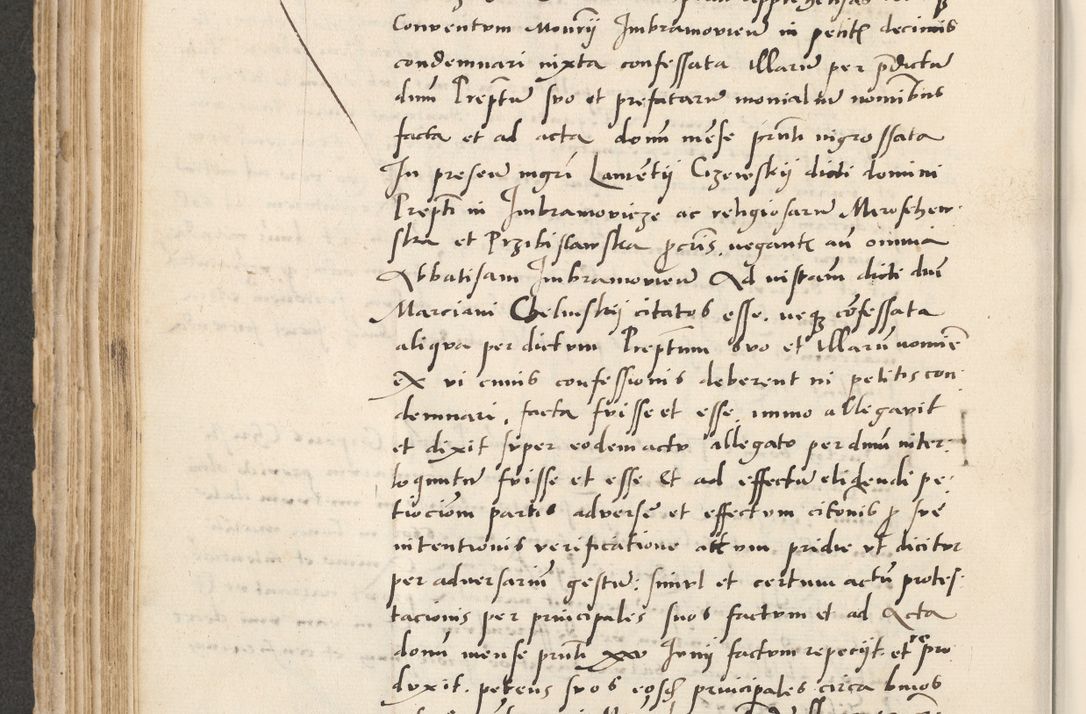 Conventum Monrÿ Imbramovien in petit decimis
condemnari iuxta confessata illarum per p̄dictu
dnm̄ Prepm̄ suo et prefatarum monialium nominibus
facta et ad acta donm̄ mense prn̄ti ingrossata
In presen mgrī Laurētij Cizewskij dicti domini
Prepti in Imbramovicze ac religiosarum Miroschew
ska et Przibislawska pcrīs. negant̄ aū omnia
Abbatisam Imbramovien Ad instām dicti dnī
Marciani Chelmskij citatos esse. neq̄ cōfessata
aliqua per dictum Preptum suo et illarū nomīe
ex vi cuius confessionis deberent in petitis con
demnari, facta fuisse et esse, immo allegavit
et dixit super eodem actu allegato per dnm̄ inter
loquutum fuisse et esse Et ad effectum eligendi pe
ticiom̄ partis adverse et effectum citōnis p̄ sue
intentionis verificatione actum pridie ut dicitur
per adversarium gestum: simul et certum actum protes
tacionis per principales suos factum et ad Acta
donm̄ mense prn̄ti xxv Junij factum repecijt. et repro
duxit. petens suos eosđ principales circa huius